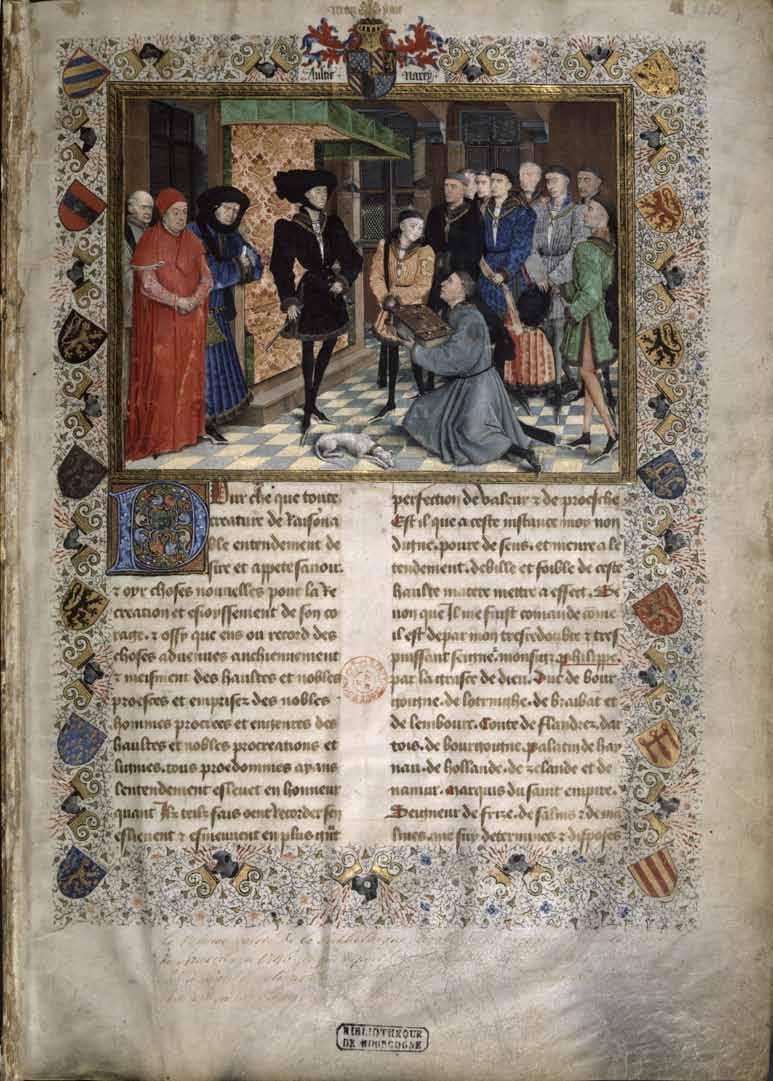 Aultre
Narey
Pour che que toute
creature de Raisona
ble entendement de
sire et appete savoir.
z oyr choses nouuelles pour la re
creation et esioyssement de son co
rage. z ossy que ens ou record des
choses aduenues anchiennement
z meisment des haultes et nobles
proesces et emprisez des nobles
hommes procrees et engenrés des
haultes et nobles procreations et
lignies. tous proedommes ayans
lentendement esleuet en honneur
quant Ilz telz fais oent recorder sen
esliéuent z esmeuuent en plus gñt
perfection de valeur z de proesche
Est il que a ceste instance moy non
digne. poure de sens. et menre a lé
tendement. debille et foible de ceste
haulte matere mettre a effect. Se
non que Il me fuist comande come
il est de par mon tresredoubte z tres
puissant seignr. monsigr philippe.
par la grasce de dieu. Duc de bour
goigne. de lotringhe. de braibat et
de lembourc. Conte de flandrez. dar
tois. de bourgoigne. palatin de hay
nau. de hollande. de zelande et de
namur. Marquis du saint empire.
Seigneur de frize. de salins z de ma
lines. me suy determines z disposes
BIBLIOTHEQUE
DE BOURGOGNE